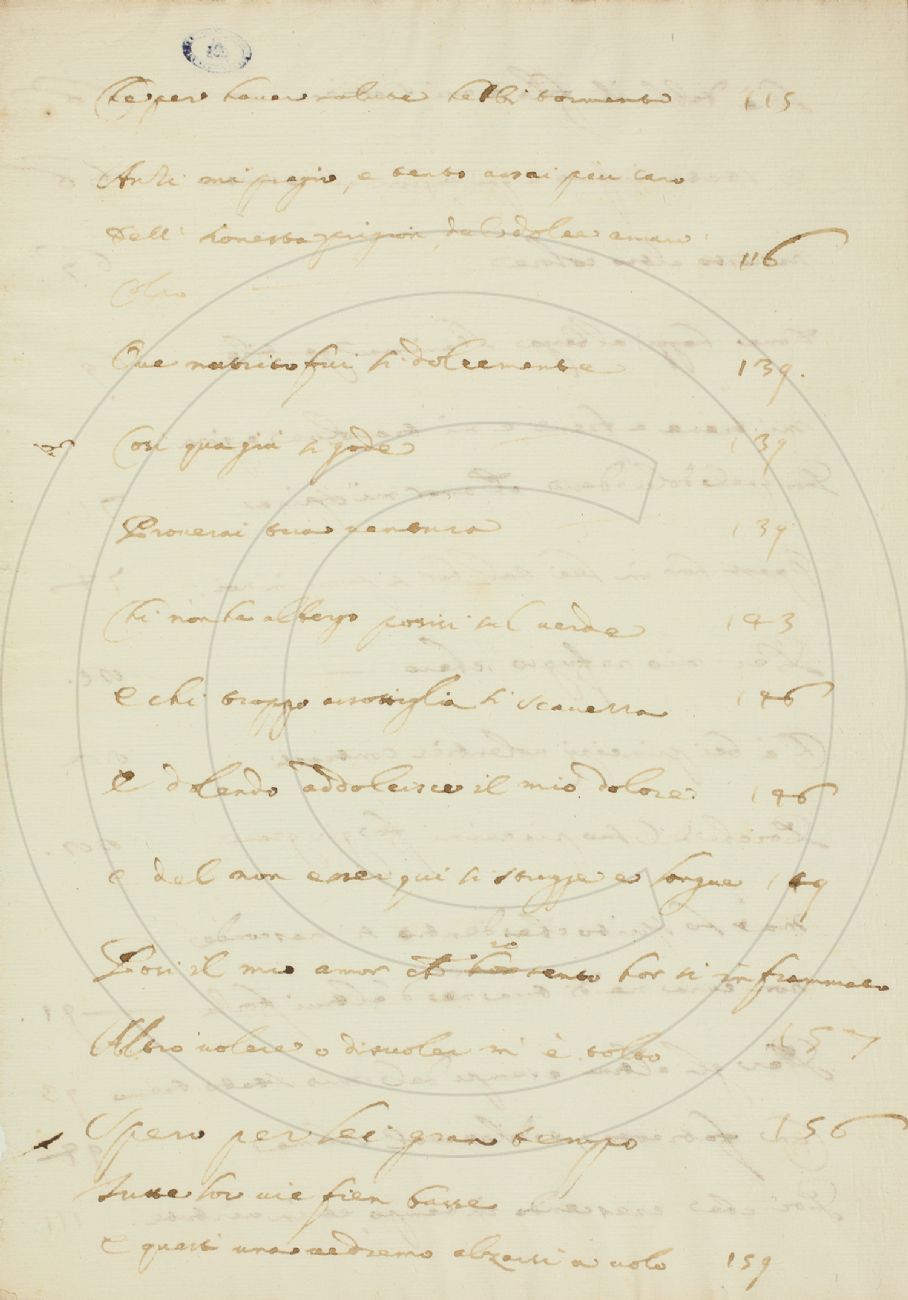 Che per haver salute hebbi tormento 115
Anzi mi pregio, e tento assai piu caro
Dell' honesta prigion, del dolce amaro 116
Colpo
Che nutrito fui si dolcemente 139.
Cosi qua giu si gode 139
Proverai tua ventura 139
Chi non ha albergo posisi sul verde 143
E chi troppo assottiglia si scavezza 146
E dolendo addolcisce il mio dolore 146
e del non esser qui si strugge e langue 149
Cosi il mio amor tento hor si infiammato
Altro volere o disvoler m' è tolto 157
Spero per lei gran tempo 156
Tutte lor vie fien basse
E quasi una vedremo alzarsi a volo 159